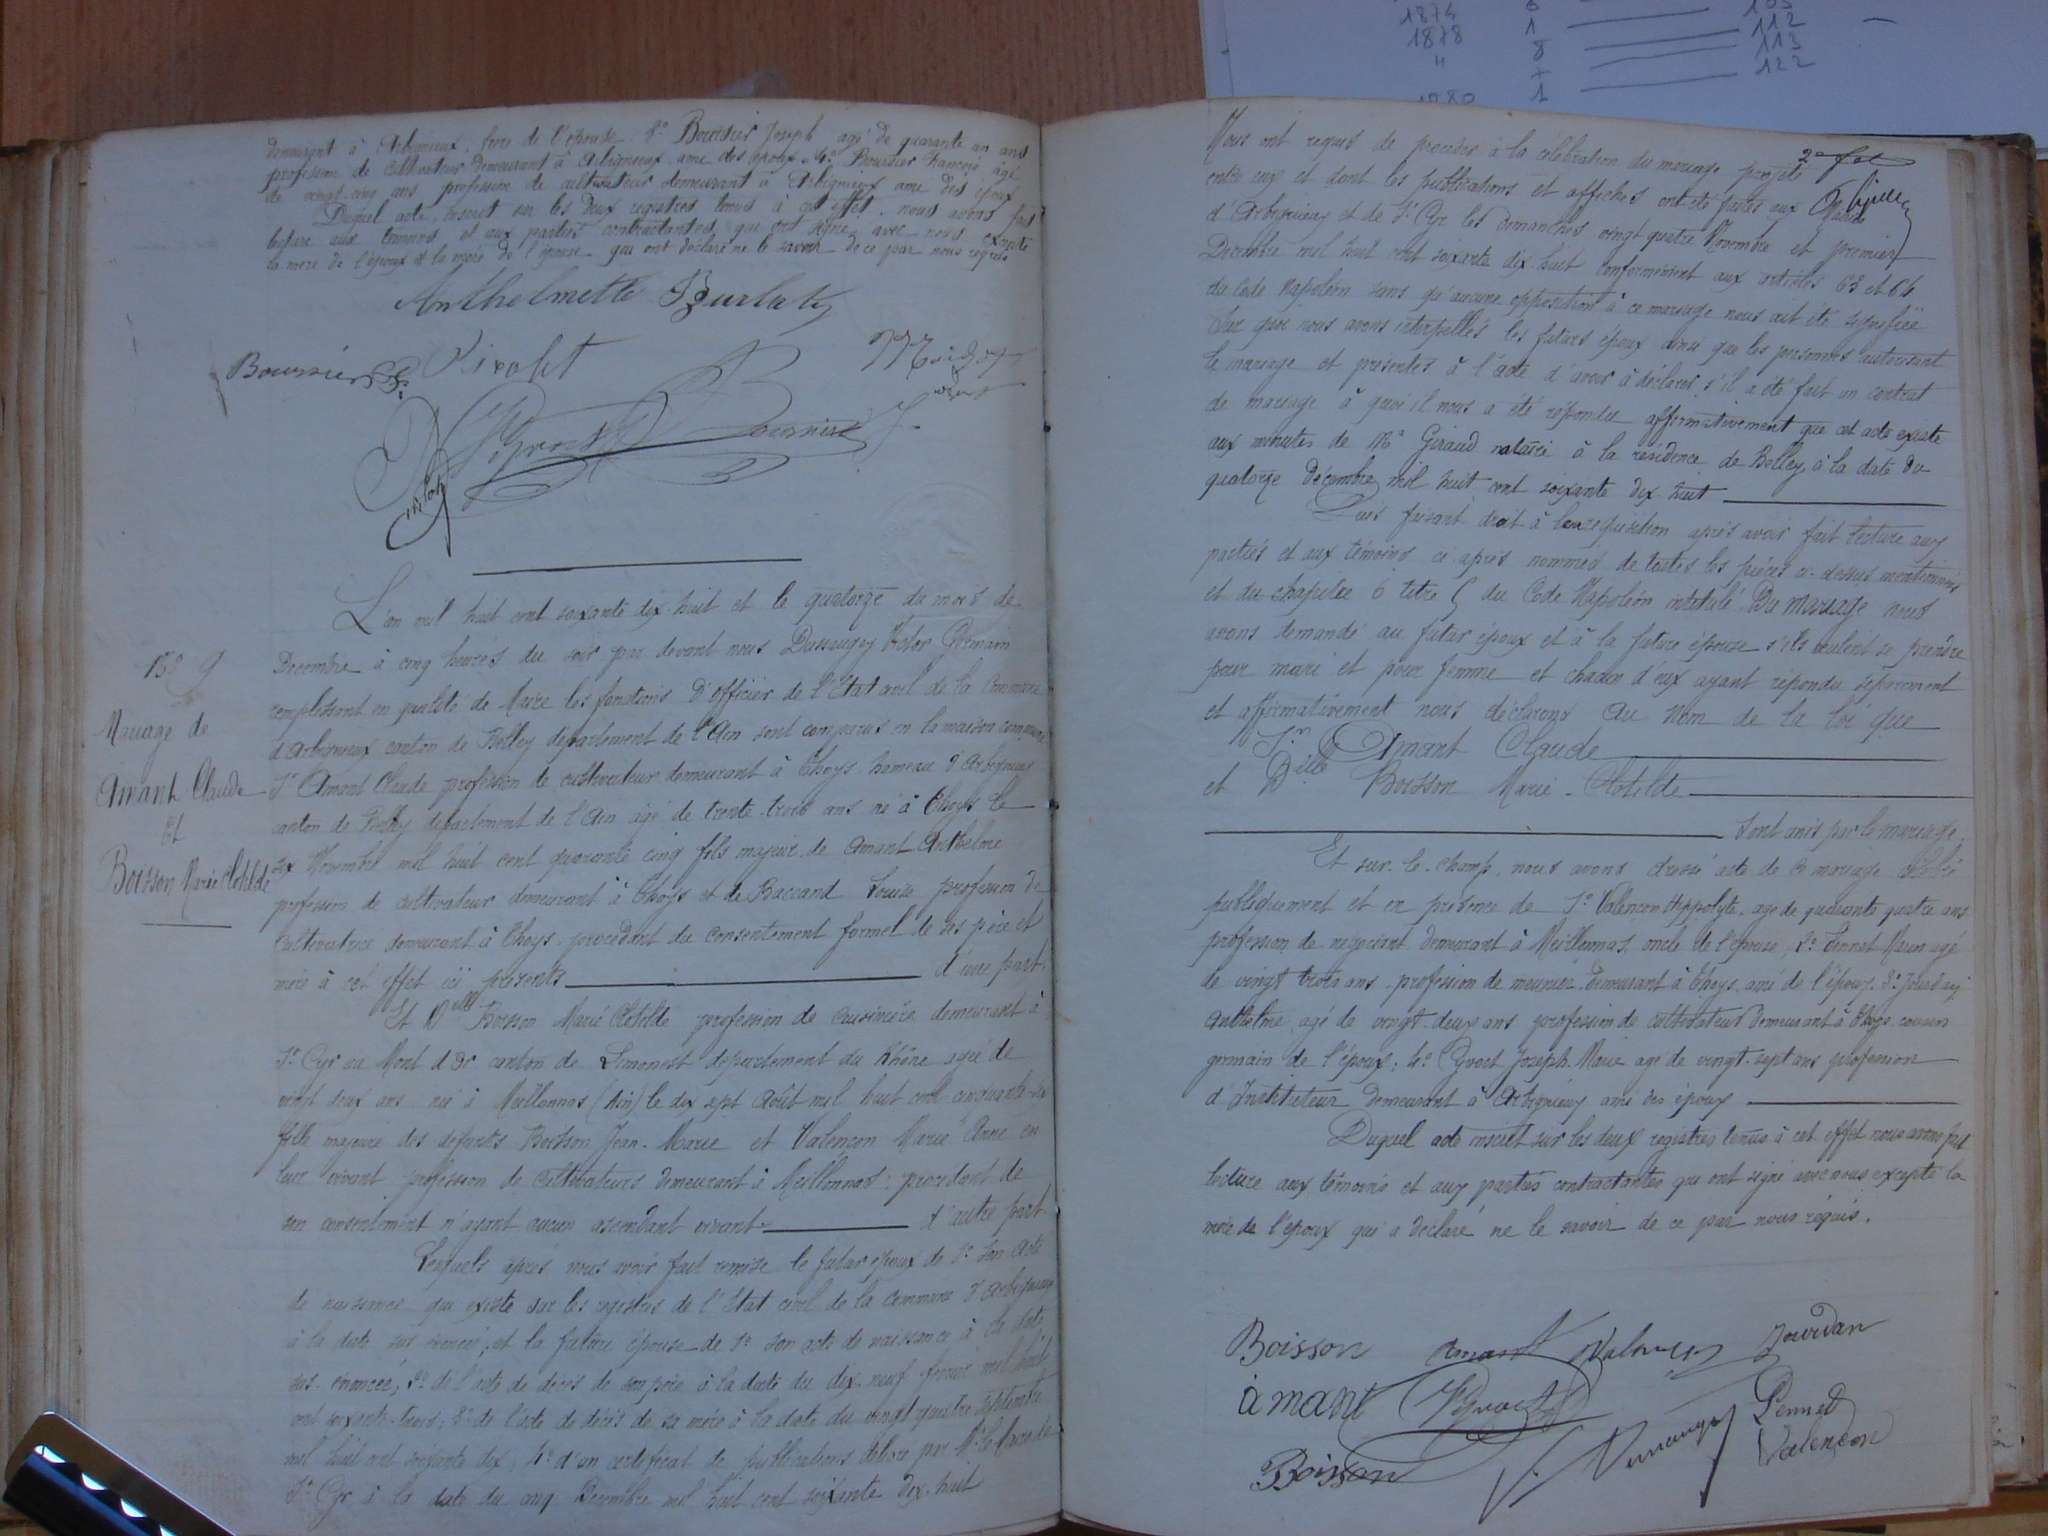 1874 6 105
1878 1 112
" 8 113
1 122
1880
demeurant à Arbignieux, frère de l'épouse, 3° Boursier Joseph agé de quarante un ans
profession de cultivateur demeurant à Arbignieux ami des époux, 4° Boursier François agé
de vingt cinq ans profession de cultivateur demeurant à Arbignieux ami des époux
Duquel acte, inscrit sur les deux registres tenus à cet effet, nous avons fait
lecture aux témoins et aux parties contractantes, qui ont signé avec nous excepté
la mère de l'époux et la mère de l'épouse qui ont déclaré ne le savoir de ce par nous requis
Anthelmette Burlat
Boursier
L'an mil huit cent soixante dix-huit et le quatorze du mois de
Décembre à cinq heures du soir par devant nous Dussaugey Victor Germain
remplissant en qualité de Maire les fonctions d'officier de l'État civil de la Commune
d'Arbignieux canton de Belley département de l'Ain sont comparus en la maison commune
Sr Amant Claude profession de cultivateur demeurant à Thoys hameau d'Arbignieux
canton de Belley département de l'Ain agé de trente-trois ans né à Thoys le
six Novembre mil huit cent quarante cinq fils majeur de Amant Anthelme
profession de cultivateur demeurant à Thoys et de Baccand Louise profession de
cultivatrice demeurant à Thoys, procédant du consentement formel de ses père et
mère à cet effet ici présents d'une part,
Mariage de
Amant Claude
et
Boisson Marie Clotilde
Et Dlle Boisson Marie Clotilde profession de cuisinière demeurant à
St Cyr au Mont d'Or canton de Limonest département du Rhône agée de
vingt deux ans née à Meillonnas (Ain) le dix sept Août mil huit cent cinquante-six
fille majeure des défunts Boisson Jean-Marie et Valençon Marie Anne en
leur vivant profession de cultivateurs demeurant à Meillonnas; procédant de
son consentement n'ayant aucun ascendant vivant d'autre part
Lesquels après nous avoir fait remise le futur époux de 1° son acte
de naissance qui existe sur les registres de l'État civil de la Commune d'Arbignieux
à la date sus énoncée; et la future épouse de 1° son acte de naissance à la date
sus-énoncée, 2° de l'acte de décès de son père à la date du dix-neuf février mil huit
cent soixante-trois; 3° de l'acte de décès de sa mère à la date du vingt quatre septembre
mil huit cent soixante dix, 4° d'un certificat de publications délivré par Mr le Maire de
St Cyr à la date du cinq Décembre mil huit cent soixante dix-huit
Nous ont requis de procéder à la célébration du mariage projeté
entre eux et dont les publications et affiches ont été faites aux Mairies
d'Arbignieux et de St Cyr les dimanches vingt quatre Novembre et premier
Décembre mil huit cent soixante dix-huit conformément aux articles 63 et 64
du Code Napoléon sans qu'aucune opposition à ce mariage nous ait été signifiée
Sur quoi nous avons interpellés les futurs époux ainsi que les personnes autorisant
le mariage et présentes à l'acte d'avoir à déclarer s'il a été fait un contrat
de mariage à quoi il nous a été répondu affirmativement que cet acte existe
aux minutes de Me Giraud notaire à la résidence de Belley, à la date du
quatorze décembre mil huit cent soixante dix-huit
Puis faisant droit à leur réquisition après avoir fait lecture aux
parties et aux témoins ci après nommés de toutes les pièces ci-dessus mentionnées
et du chapitre 6 titre 5 du Code Napoléon intitulé Du Mariage nous
avons demandé au futur époux et à la future épouse s'ils veulent se prendre
pour mari et pour femme et chacun d'eux ayant répondu séparément
et affirmativement nous déclarons au nom de la loi que
Sr Amant Claude
et Dlle Boisson Marie-Clotilde
sont unis par le mariage.
Et sur-le-champ, nous avons dressé acte de ce mariage célébré
publiquement et en présence de 1° Valençon Hippolyte, agé de quarante quatre ans
profession de négociant, demeurant à Meillonnas, oncle de l'épouse, 2° Pennet Marin agé
de vingt trois ans, profession de meunier, demeurant à Thoys, ami de l'époux, 3° Jourdan
Anthelme agé de vingt-deux ans profession de cultivateur demeurant à Thoys, cousin
germain de l'époux; 4° Gyvoct Joseph Marie agé de vingt-sept ans profession
d'Instituteur demeurant à Arbignieux ami des époux
Duquel acte inscrit sur les deux registres tenus à cet effet nous avons fait
lecture aux témoins et aux parties contractantes qui ont signé avec nous excepté la
mère de l'époux qui a déclaré ne le savoir de ce par nous requis.
Boisson Amant Valençon Jourdan
amant Pennet
Boisson Valençon